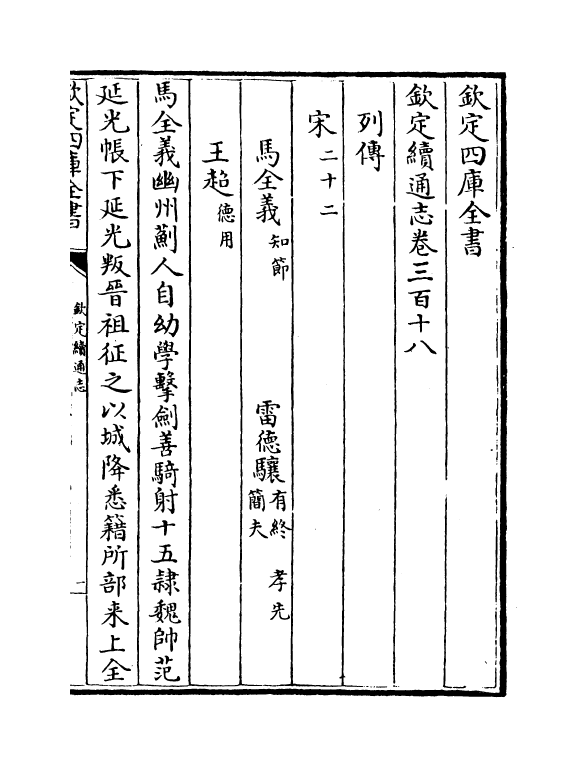 欽定四庫全書
欽定續通志卷三百十八
列傳
宋二十二
馬全義知節　雷德驤有終　孝先　簡夫
王超德用
馬全義幽州薊人自幼學擊劍善騎射十五隸魏帥范
延光帳下延光叛晉祖征之以城降悉籍所部来上全
欽定四庫全書
欽定續通志